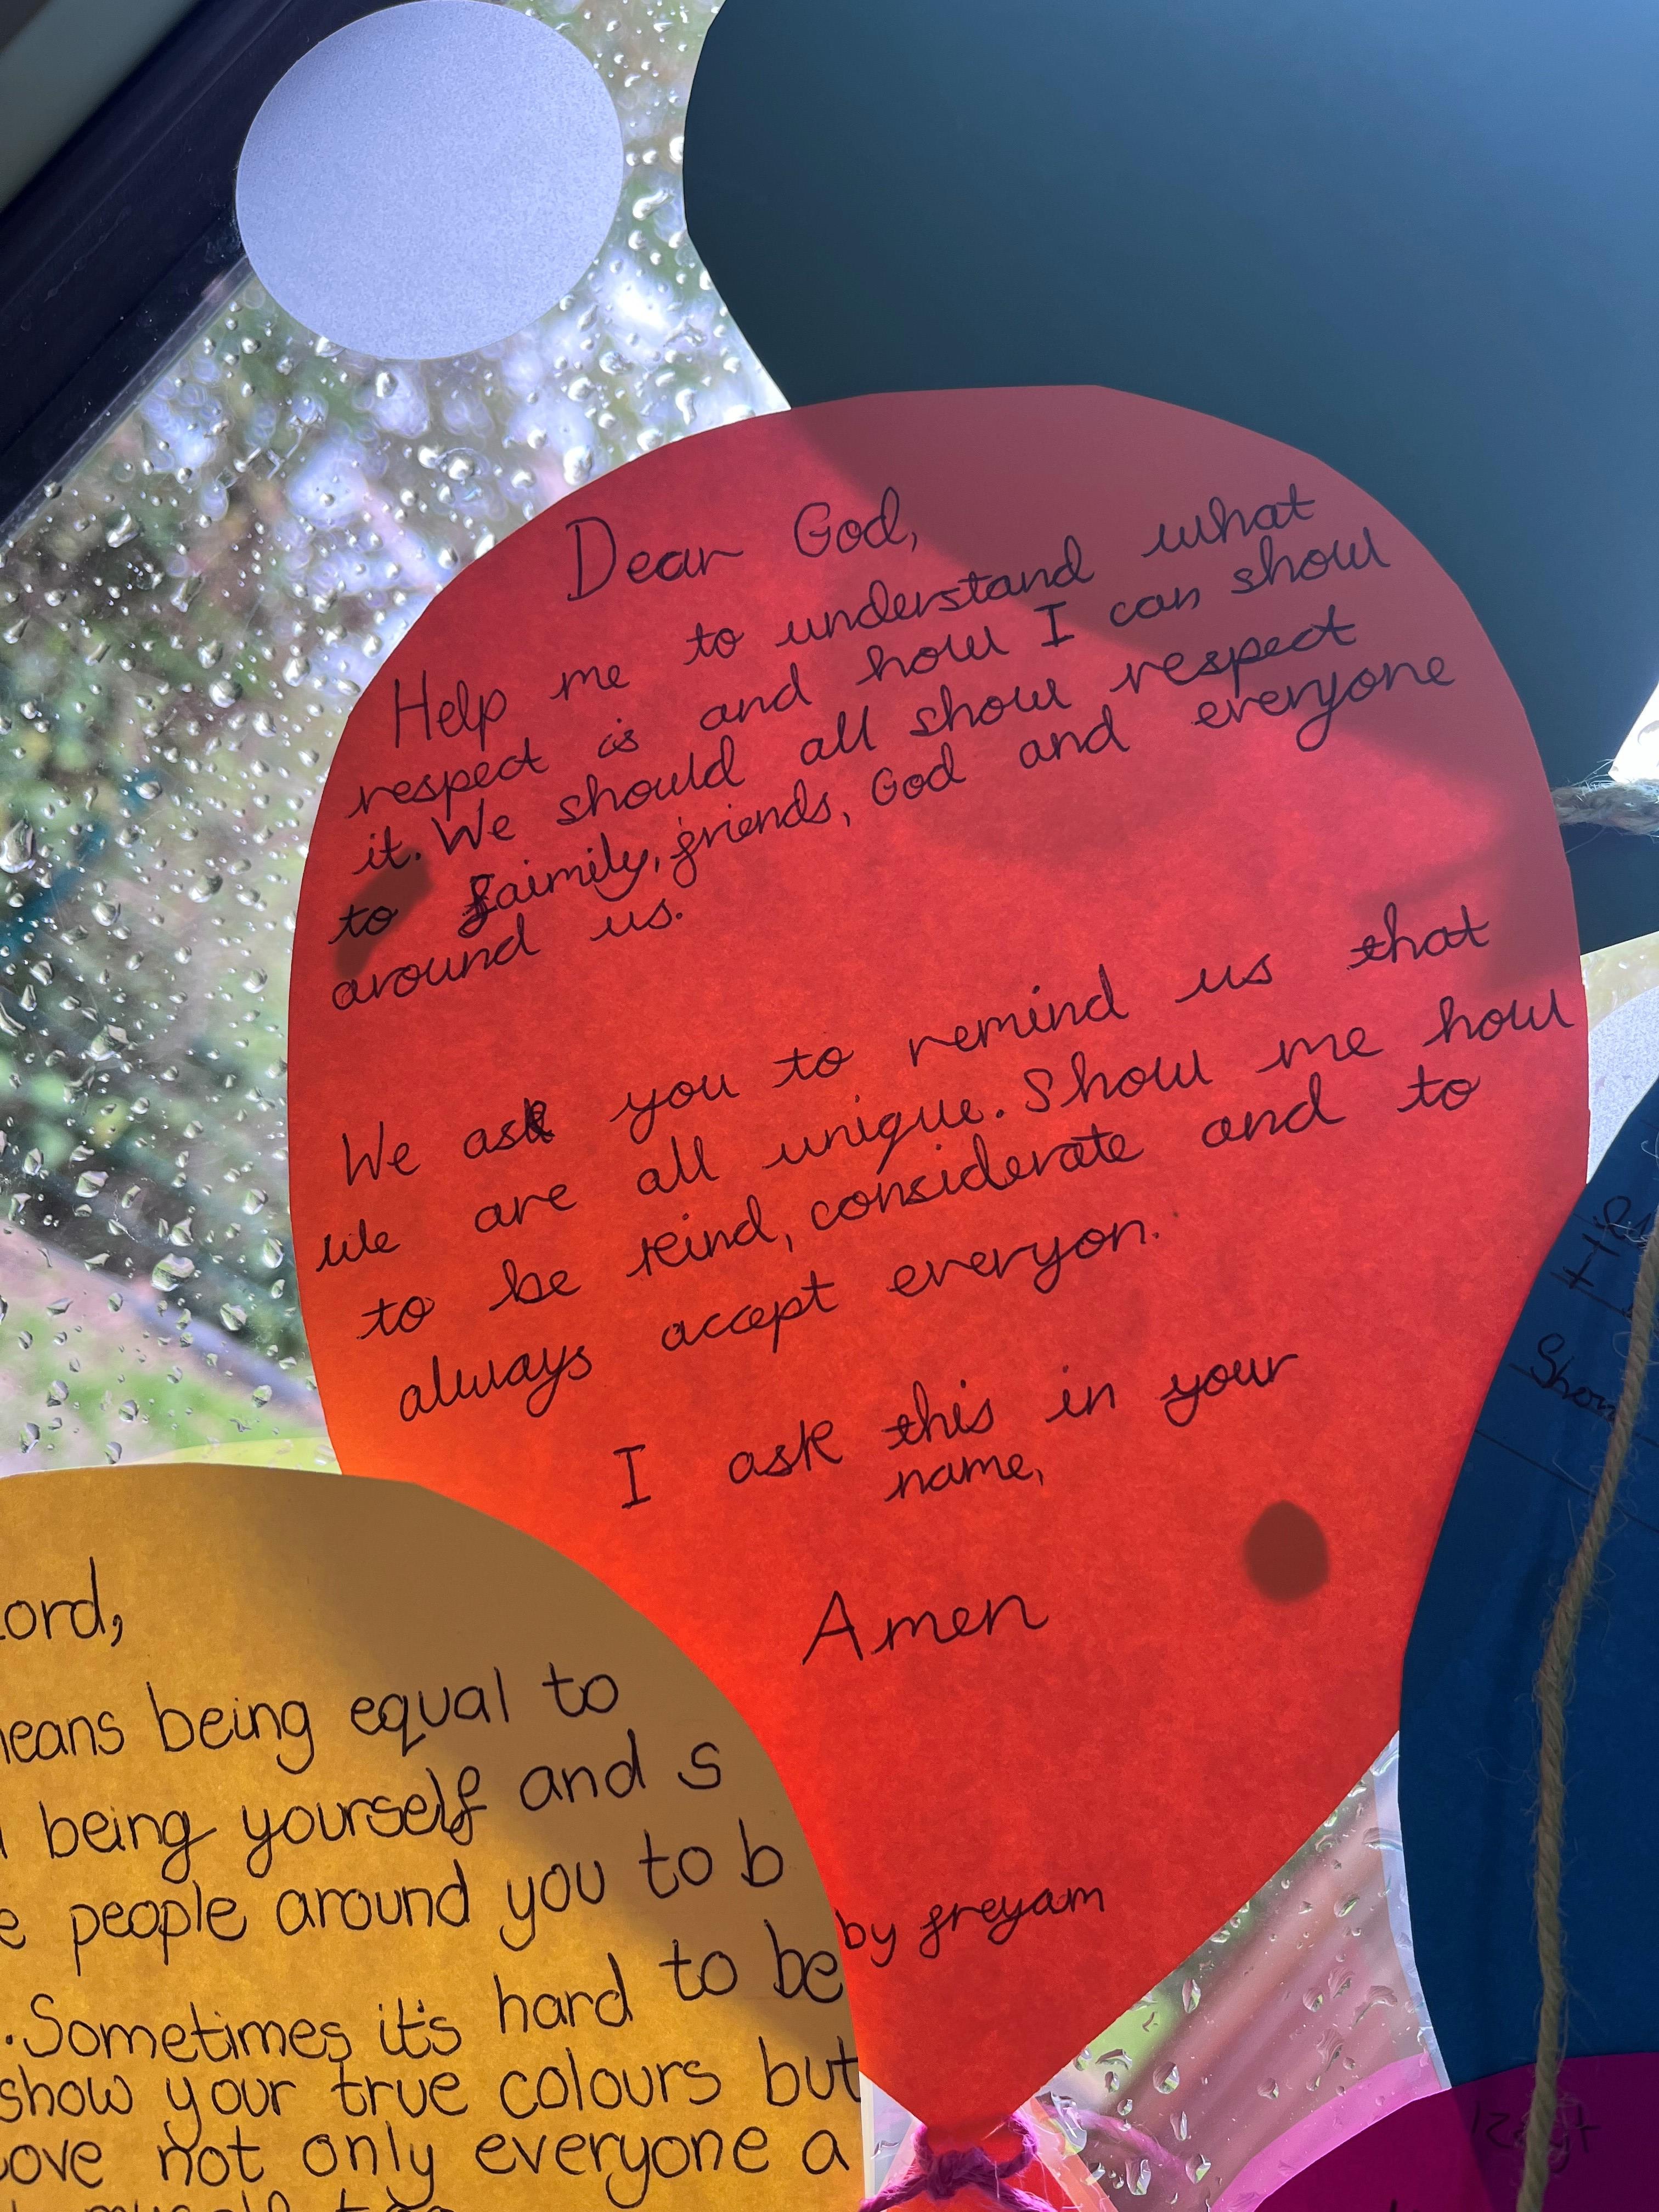 Dear God,
Help me to understand what
respect is and how I can show
it. We should all show respect
to faimily, friends, God and everyone
around us.
We ask you to remind us that
we are all unique. Show me how
to be kind, considerate and to
always accept everyon.
I ask this in your
name,
Amen
by freyam
ord,
eans being equal to
being yourself and s
e people around you to b
. Sometimes it's hard to be
show your true colours but
ove not only everyone a
Show